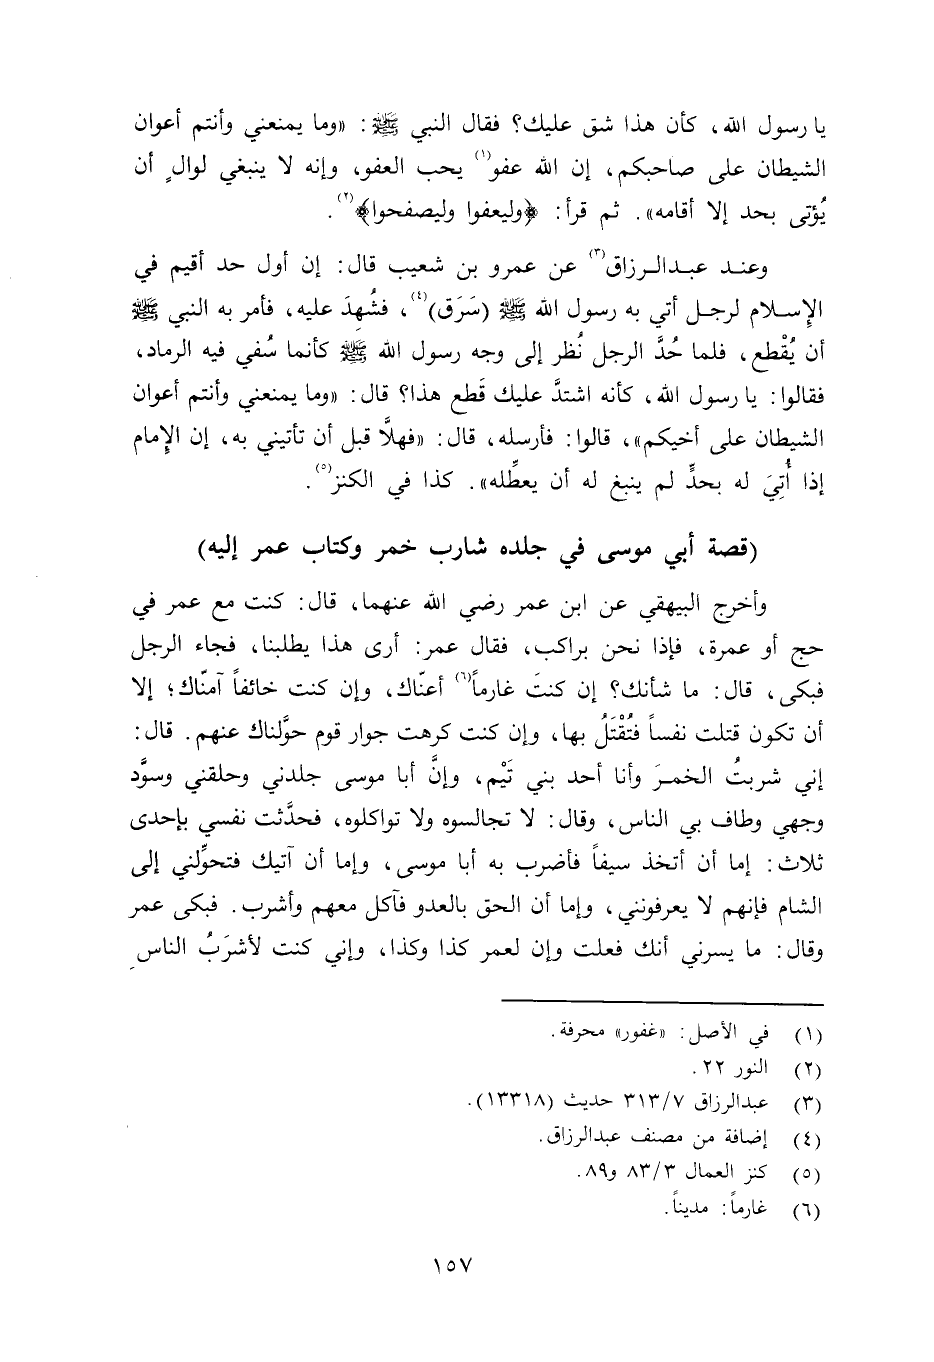 يا رسول الله، كأن هذا شق عليك؟ فقال النبي ﷺ: «وما يمنعني وأنتم أعوان
الشيطان على صاحبكم، إن الله عفو(١) يحب العفو، وإنه لا ينبغي لوالٍ أن
يُؤتى بحد إلا أقامه». ثم قرأ: ﴿وليعفوا وليصفحوا﴾(٢).
وعند عبدالرزاق(٣) عن عمرو بن شعيب قال: إن أول حد أقيم في
الإسلام لرجل أتي به رسول الله ﷺ (سَرَق)(٤)، فشُهِدَ عليه، فأمر به النبي ﷺ
أن يُقْطع، فلما حُدَّ الرجل نُظر إلى وجه رسول الله ﷺ كأنما سُفي فيه الرماد،
فقالوا: يا رسول الله، كأنه اشتدَّ عليك قَطع هذا؟ قال: «وما يمنعني وأنتم أعوان
الشيطان على أخيكم»، قالوا: فأرسله، قال: «فهلاَّ قبل أن تأتيني به، إن الإمام
إذا أُتِيَ له بحدٍّ لم ينبغ له أن يعطِّله». كذا في الكنز(٥).
(قصة أبي موسى في جلده شارب خمر وكتاب عمر إليه)
وأخرج البيهقي عن ابن عمر رضي الله عنهما، قال: كنت مع عمر في
حج أو عمرة، فإذا نحن براكب، فقال عمر: أرى هذا يطلبنا، فجاء الرجل
فبكى، قال: ما شأنك؟ إن كنتَ غارماً(٦) أعنّاك، وإن كنت خائفاً آمنّاك؛ إلا
أن تكون قتلت نفساً فتُقْتَلُ بها، وإن كنت كرهت جوار قوم حوَّلناك عنهم. قال:
إني شربتُ الخمرَ وأنا أحد بني تَيْم، وإنَّ أبا موسى جلدني وحلقني وسوَّد
وجهي وطاف بي الناس، وقال: لا تجالسوه ولا تواكلوه، فحدَّثت نفسي بإحدى
ثلاث: إما أن أتخذ سيفاً فأضرب به أبا موسى، وإما أن آتيك فتحوِّلني إلى
الشام فإنهم لا يعرفونني، وإما أن الحق بالعدو فآكل معهم وأشرب. فبكى عمر
وقال: ما يسرني أنك فعلت وإن لعمر كذا وكذا، وإني كنت لأشرَبُ الناس
(١) في الأصل: «غفور» محرفة.
(٢) النور ٢٢.
(٣) عبدالرزاق ٣١٣/٧ حديث (١٣٣١٨).
(٤) إضافة من مصنف عبدالرزاق.
(٥) كنز العمال ٨٣/٣ و٨٩.
(٦) غارماً: مديناً.
١٥٧